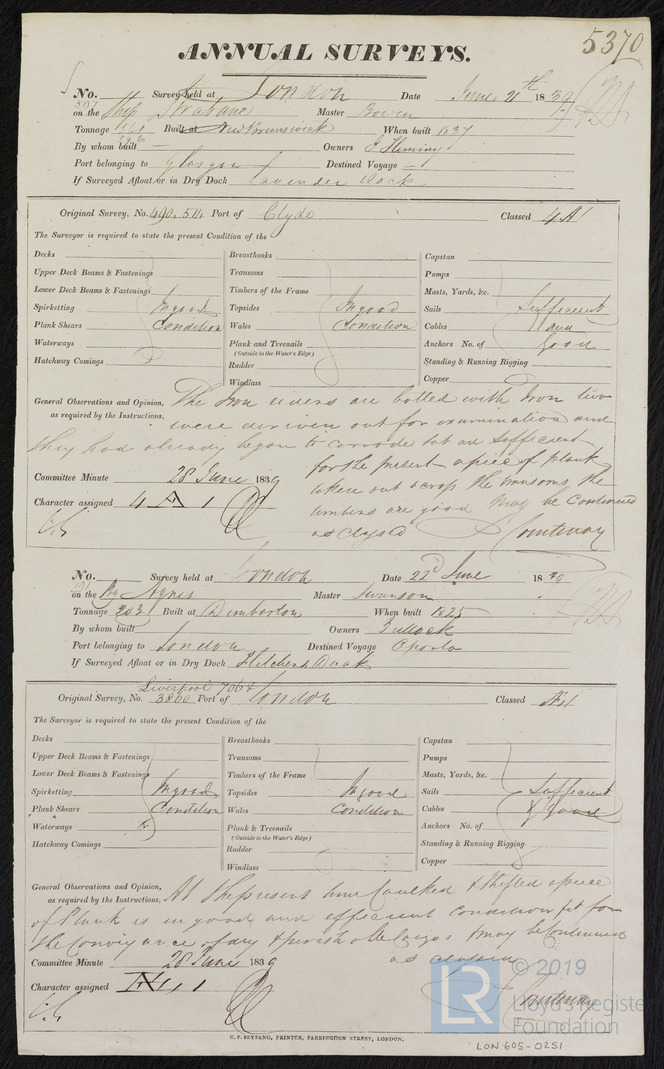 5370
ANNUAL SURVEYS.
No. Survey held at London Date June 21th 1839
on the Ship Strabane Master Bowen
Tonnage Built at New Brunswick When built 1837
By whom built — Owners J Fleming
Port belonging to Glasgow Destined Voyage —
If Surveyed Afloat or in Dry Dock Lavender Dock
Original Survey, No. 490. 514 Port of Clyde Classed 4 A 1
The Surveyor is required to state the present Condition of the
Decks Breasthooks Capstan
Upper Deck Beams & Fastenings Transoms Pumps
Lower Deck Beams & Fastenings Timbers of the Frame Masts, Yards, &c.
Spirketting In good Topsides In good Sails Sufficient
Plank Shears Condition Wales Condition Cables and
Waterways Plank and Treenails Anchors No. of Good
(Outside to the Water's Edge)
Hatchway Comings Rudder Standing & Running Rigging
Windlass Copper
General Observations and Opinion, The Iron riders are bolted with Iron two
as required by the Instructions, were driven out for examination and
they had already began to corrode but are sufficient
for the present a piece of plank
Committee Minute 28 June 1839 taken out across the transoms the
Character assigned 4 A 1 timbers are good may be continued
as classd Courtenay
No. Survey held at London Date 22d June 1839
on the Bg Agnes Master Swanson
Tonnage 203 Built at Dumbarton When built 1825
By whom built Owners Bullock
Port belonging to London Destined Voyage Oporto
If Surveyed Afloat or in Dry Dock Fletchers Dock
Liverpool 7064
Original Survey, No. 3800 Port of London Classed Æ 1
The Surveyor is required to state the present Condition of the
Decks Breasthooks Capstan
Upper Deck Beams & Fastenings Transoms Pumps
Lower Deck Beams & Fastenings Timbers of the Frame Masts, Yards, &c.
Spirketting In good Topsides In good Sails Sufficient
Plank Shears Condition Wales Condition Cables & good
Waterways Plank & Treenails Anchors No. of
(Outside to the Water's Edge)
Hatchway Comings Rudder Standing & Running Rigging
Windlass Copper
General Observations and Opinion, At the present time Caulked & shifted a piece
as required by the Instructions. of Plank is in good and efficient condition fit for
the Conveyance of dry & perishable Cargos & may be Continued
Committee Minute 28 June 1839 as classed
Character assigned Æ 1 Courtenay
C. F. SEYFANG, PRINTER, FARRINGDON STREET, LONDON.
LR © 2019
Lloyd's Register
Foundation
LON 605-0251